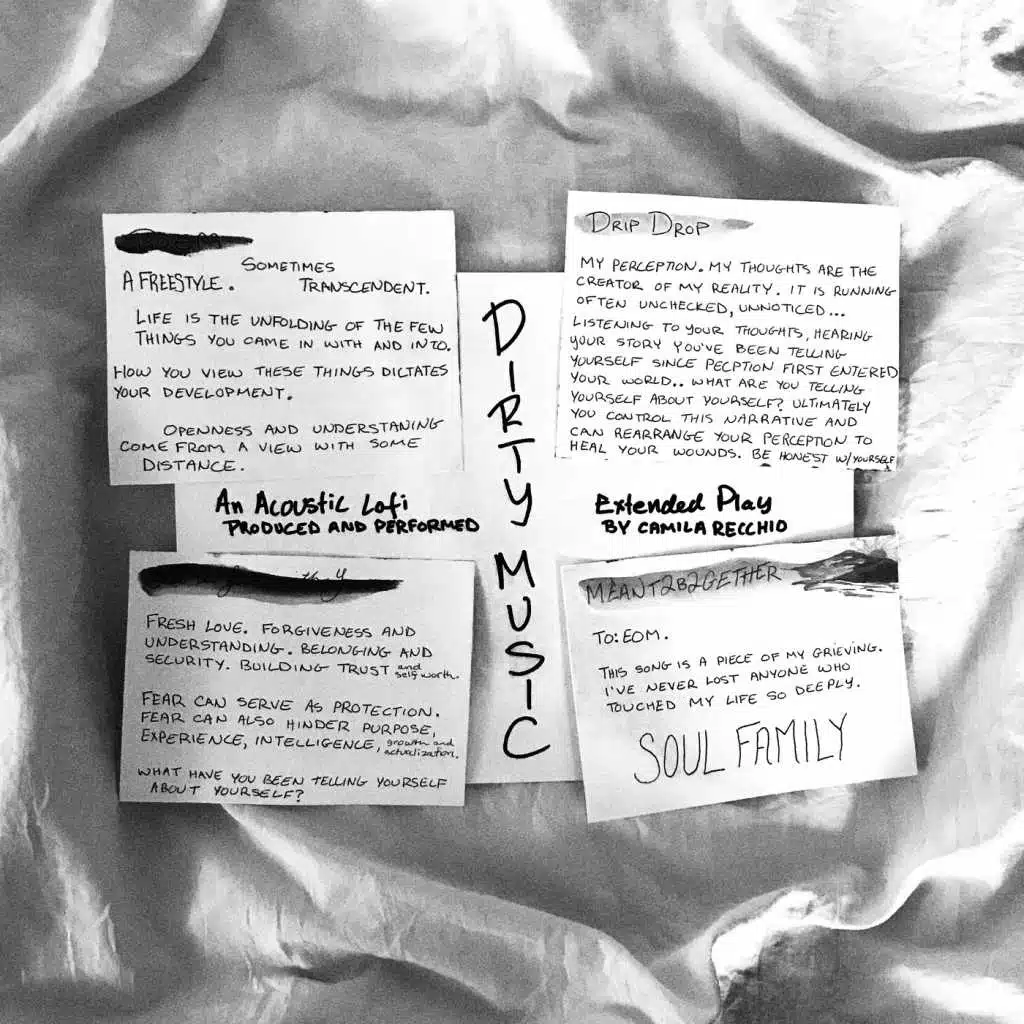 A FREESTYLE. SOMETIMES TRANSCENDENT.
LIFE IS THE UNFOLDING OF THE FEW
THINGS YOU CAME IN WITH AND INTO.
HOW YOU VIEW THESE THINGS DICTATES
YOUR DEVELOPMENT.
OPENNESS AND UNDERSTANING
COME FROM A VIEW WITH SOME
DISTANCE.
DRIP DROP
MY PERCEPTION. MY THOUGHTS ARE THE
CREATOR OF MY REALITY. IT IS RUNNING
OFTEN UNCHECKED, UNNOTICED...
LISTENING TO YOUR THOUGHTS, HEARING
YOUR STORY YOU'VE BEEN TELLING
YOURSELF SINCE PECPTION FIRST ENTERED
YOUR WORLD.. WHAT ARE YOU TELLING
YOURSELF ABOUT YOURSELF? ULTIMATELY
YOU CONTROL THIS NARRATIVE AND
CAN REARRANGE YOUR PERCEPTION TO
HEAL YOUR WOUNDS. BE HONEST W/YOURSELF
DIRTY MUSIC
An Acoustic Lofi
PRODUCED AND PERFORMED
Extended Play
BY CAMILA RECCHIO
FRESH LOVE. FORGIVENESS AND
UNDERSTANDING. BELONGING AND
SECURITY. BUILDING TRUST and self worth.
FEAR CAN SERVE AS PROTECTION.
FEAR CAN ALSO HINDER PURPOSE,
EXPERIENCE, INTELLIGENCE, growth and actualization.
WHAT HAVE YOU BEEN TELLING YOURSELF
ABOUT YOURSELF?
MEANT2B2GETHER
TO: EOM.
THIS SONG IS A PIECE OF MY GRIEVING.
I'VE NEVER LOST ANYONE WHO
TOUCHED MY LIFE SO DEEPLY.
SOUL FAMILY